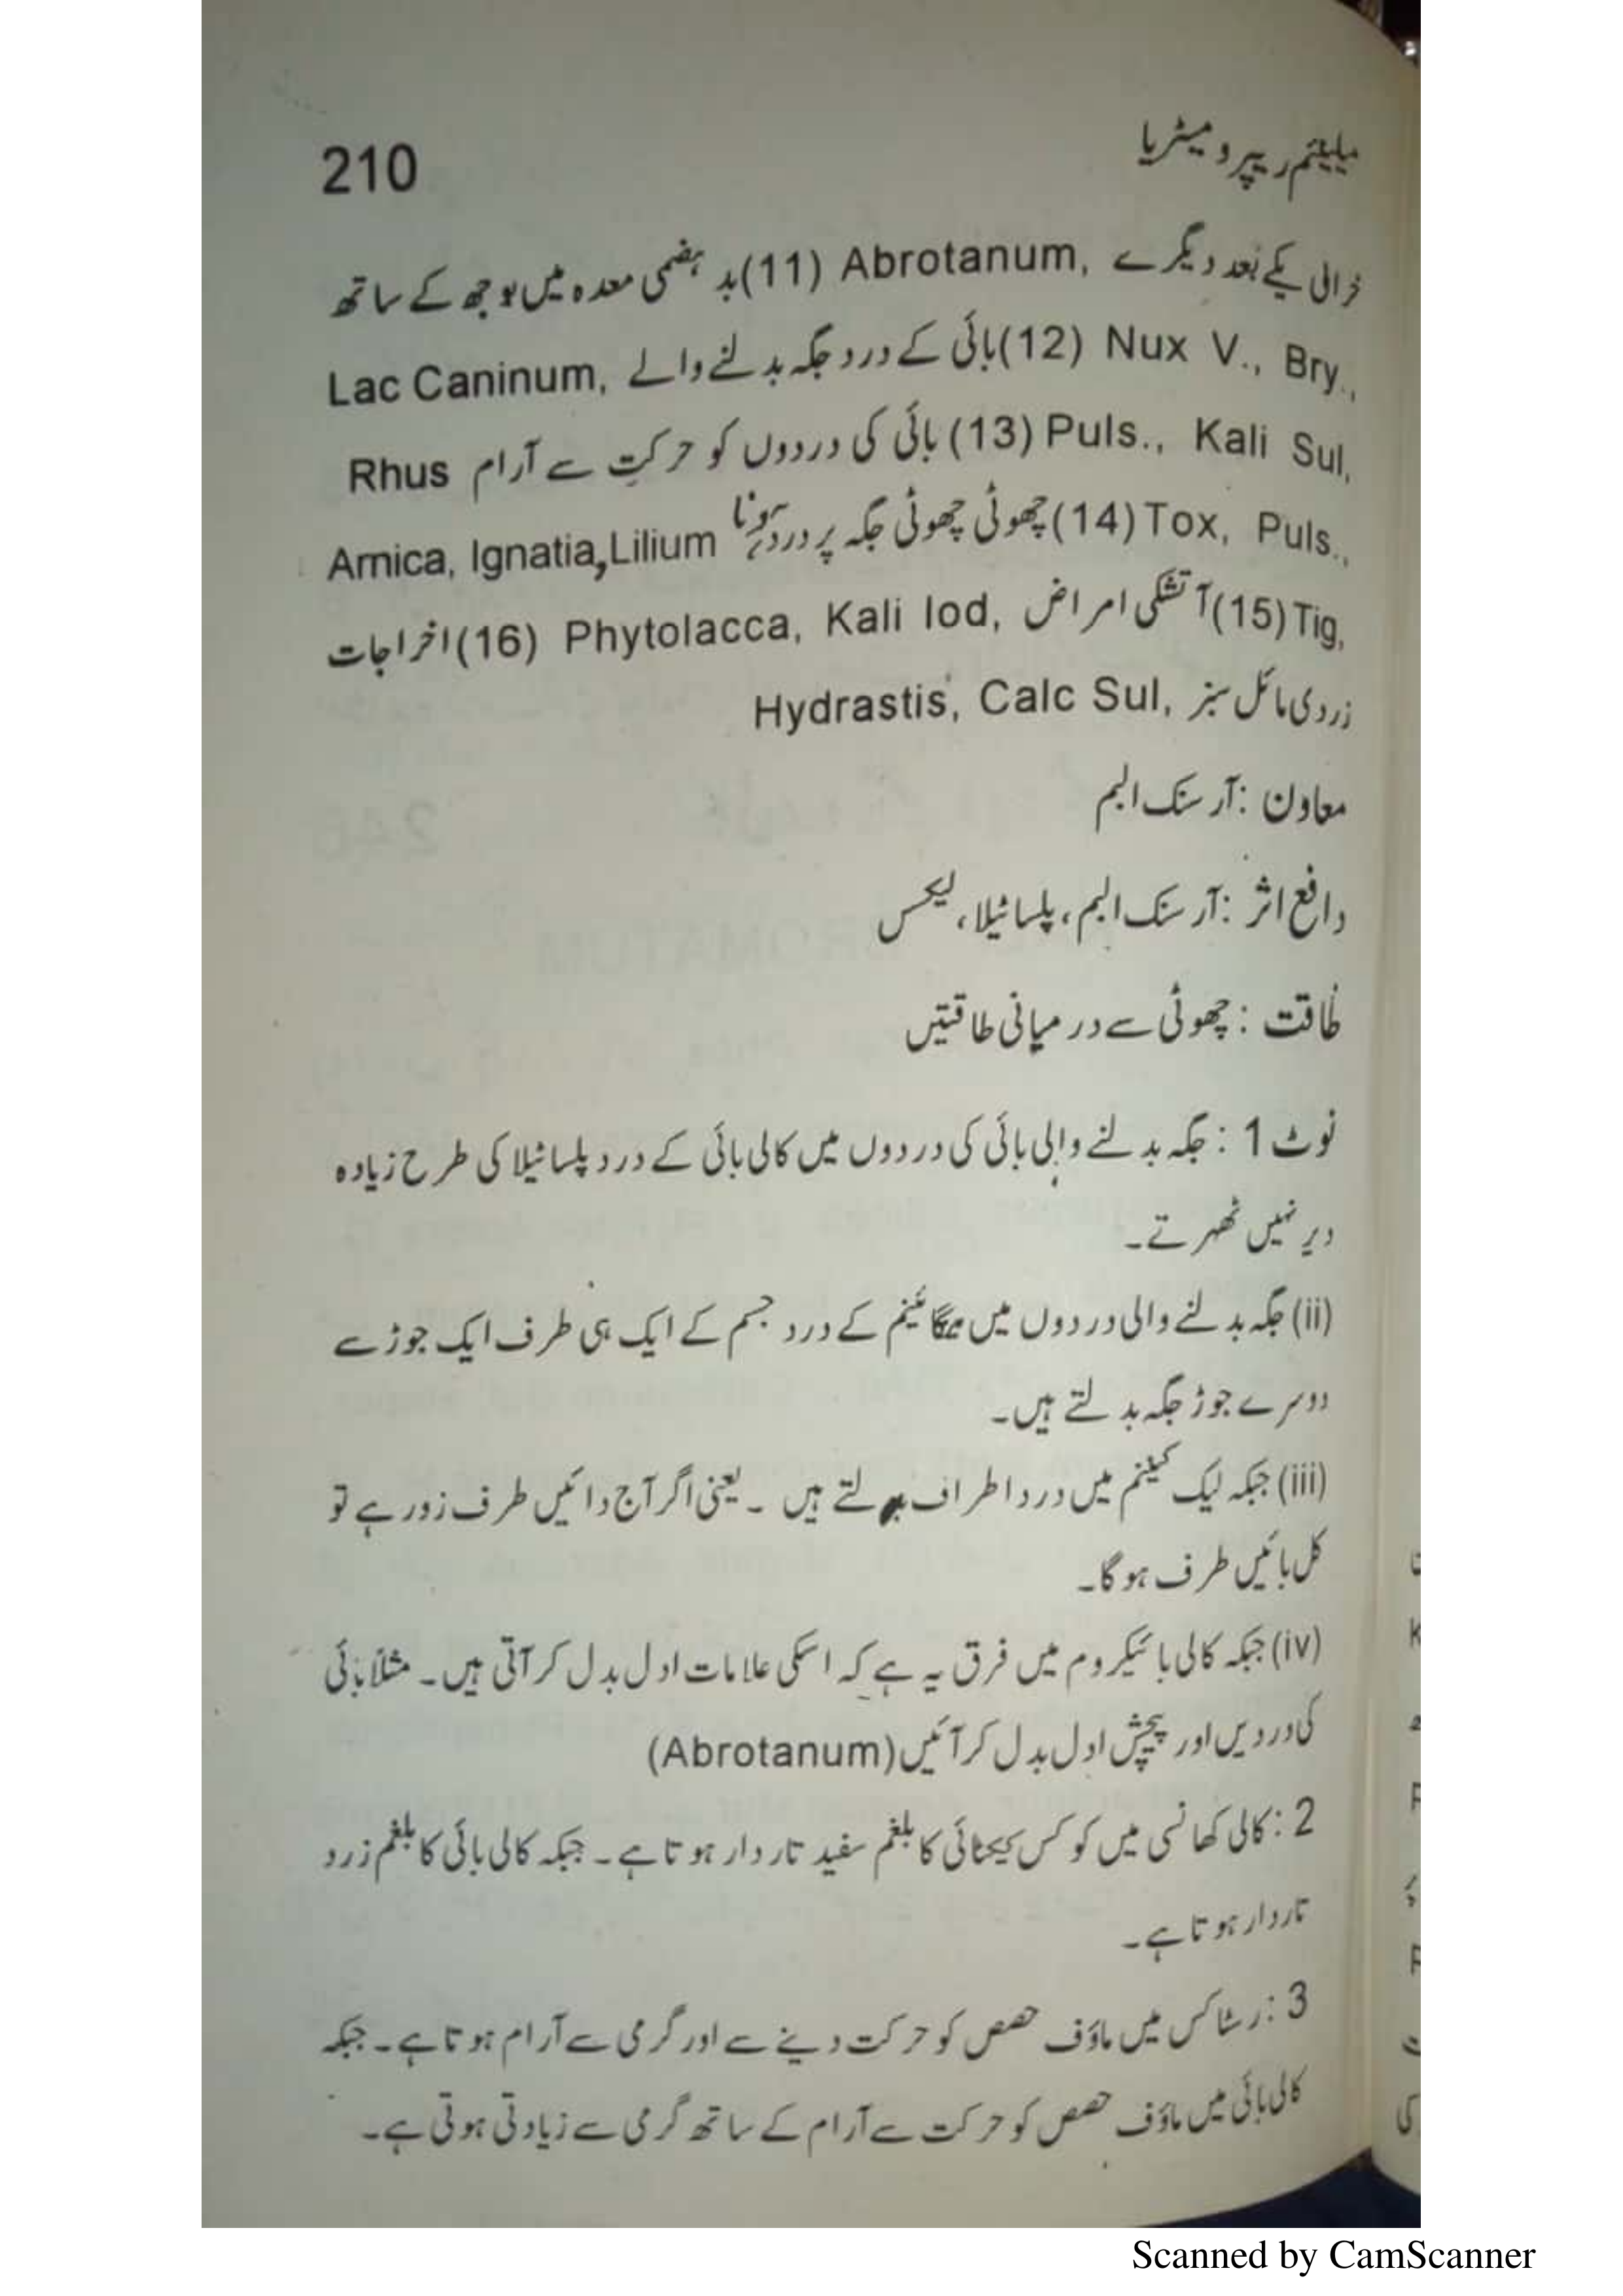 میلینئم ریپرو میٹریا
210
خرابی یکے بعد دیگرے Abrotanum, (11)بد ہضمی معدہ میں بوجھ کے ساتھ
Nux V., Bry., (12)بائی کے درد جگہ بدلنے والے Lac Caninum,
Puls., Kali Sul, (13) بائی کی دردوں کو حرکت سے آرام Rhus
Tox, Puls., (14)چھوٹی چھوٹی جگہ پر درد ہونا Arnica, Ignatia,Lilium
Tig, (15)آتشکی امراض Phytolacca, Kali Iod, (16)اخراجات
زردی مائل سبز Hydrastis, Calc Sul,
معاون : آرسنک البم
دافع اثر : آرسنک البم، پلساٹیلا، لیکسس
طاقت : چھوٹی سے درمیانی طاقتیں
نوٹ 1 : جگہ بدلنے والی بائی کی دردوں میں کالی بائی کے درد پلساٹیلا کی طرح زیادہ
دیر نہیں ٹھہرتے۔
(ii) جگہ بدلنے والی دردوں میں میگائنیم کے درد جسم کے ایک ہی طرف ایک جوڑ سے
دوسرے جوڑ جگہ بدلتے ہیں۔
(iii) جبکہ لیک کینینم میں درد اطراف بدلتے ہیں ۔ یعنی اگر آج دائیں طرف زور ہے تو
کل بائیں طرف ہوگا۔
(iv) جبکہ کالی بائیکروم میں فرق یہ ہے کہ اسکی علامات ادل بدل کر آتی ہیں۔ مثلاً بائی
کی دردیں اور پیچش ادل بدل کر آئیں (Abrotanum)
2 : کالی کھانسی میں کوکس کیکٹائی کا بلغم سفید تاردار ہوتا ہے۔ جبکہ کالی بائی کا بلغم زرد
تاردار ہوتا ہے۔
3 : رسٹاکس میں ماؤف حصص کو حرکت دینے سے اور گرمی سے آرام ہوتا ہے۔ جبکہ
کالی بائی میں ماؤف حصص کو حرکت سے آرام کے ساتھ گرمی سے زیادتی ہوتی ہے۔
Scanned by CamScanner